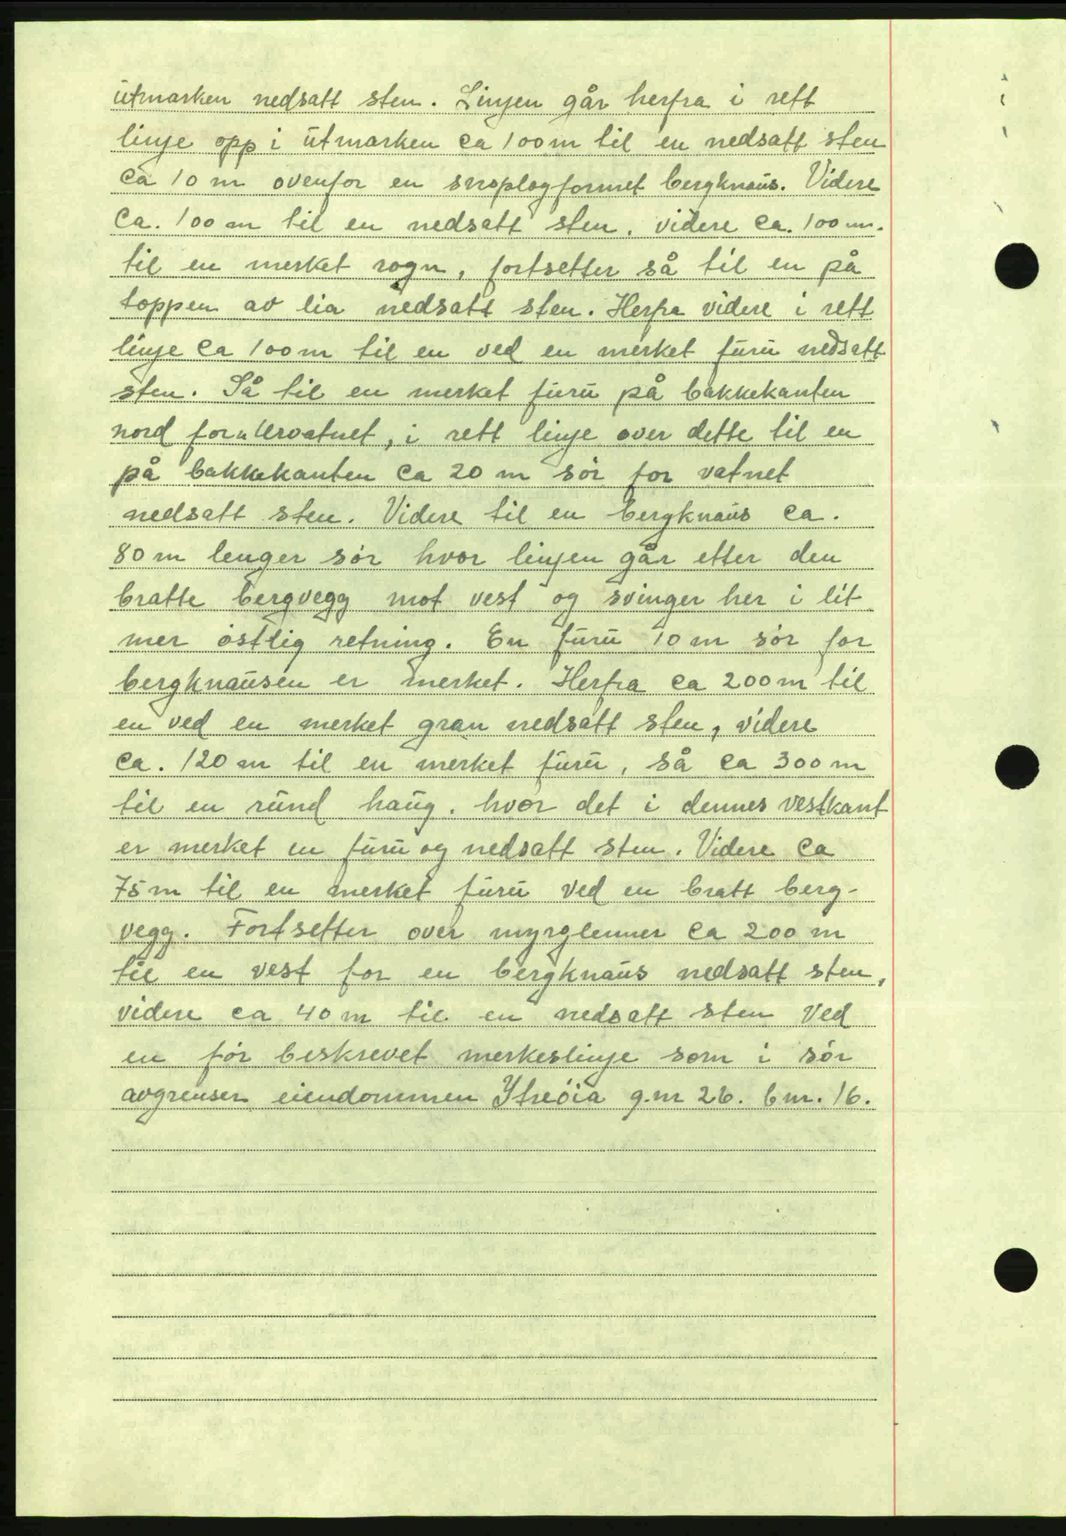 utmarken nedsatt sten. Linjen går herfra i rett
linje opp i utmarken ca 100 m til en nedsatt sten
ca 10 m ovenfor en snøplogformet bergknaus. Videre
ca. 100 m til en nedsatt sten, videre ca. 100 m.
til en merket rogn, fortsetter så til en på
toppen av lia nedsatt sten. Herfra videre i rett
linje ca 100 m til en ved en merket furu nedsatt
sten. Så til en merket furu på bakkekanten
nord for , i rett linje over dette til en
på bakkekanten ca 20 m sør for vatnet
nedsatt sten. Videre til en bergknaus ca.
80 m lenger sør hvor linjen går etter den
bratte bergvegg mot vest og svinger her i lit
mer østlig retning. En furu 10 m sør for
bergknausen er merket. Herfra ca 200 m til
en ved en merket gran nedsatt sten, videre
ca. 120 m til en merket furu, så ca 300 m
til en rund haug. hvor det i dennes vestkant
er merket en furu og nedsatt sten. Videre ca
75 m til en merket furu ved en bratt berg-
vegg. Fortsetter over myrglenner ca 200 m
til en vest for en bergknaus nedsatt sten,
videre ca 40 m til en nedsatt sten ved
en før beskrevet merkeslinje som i sør
avgrenser eiendommen Ytreøia g.nr 26. bnr. 16.